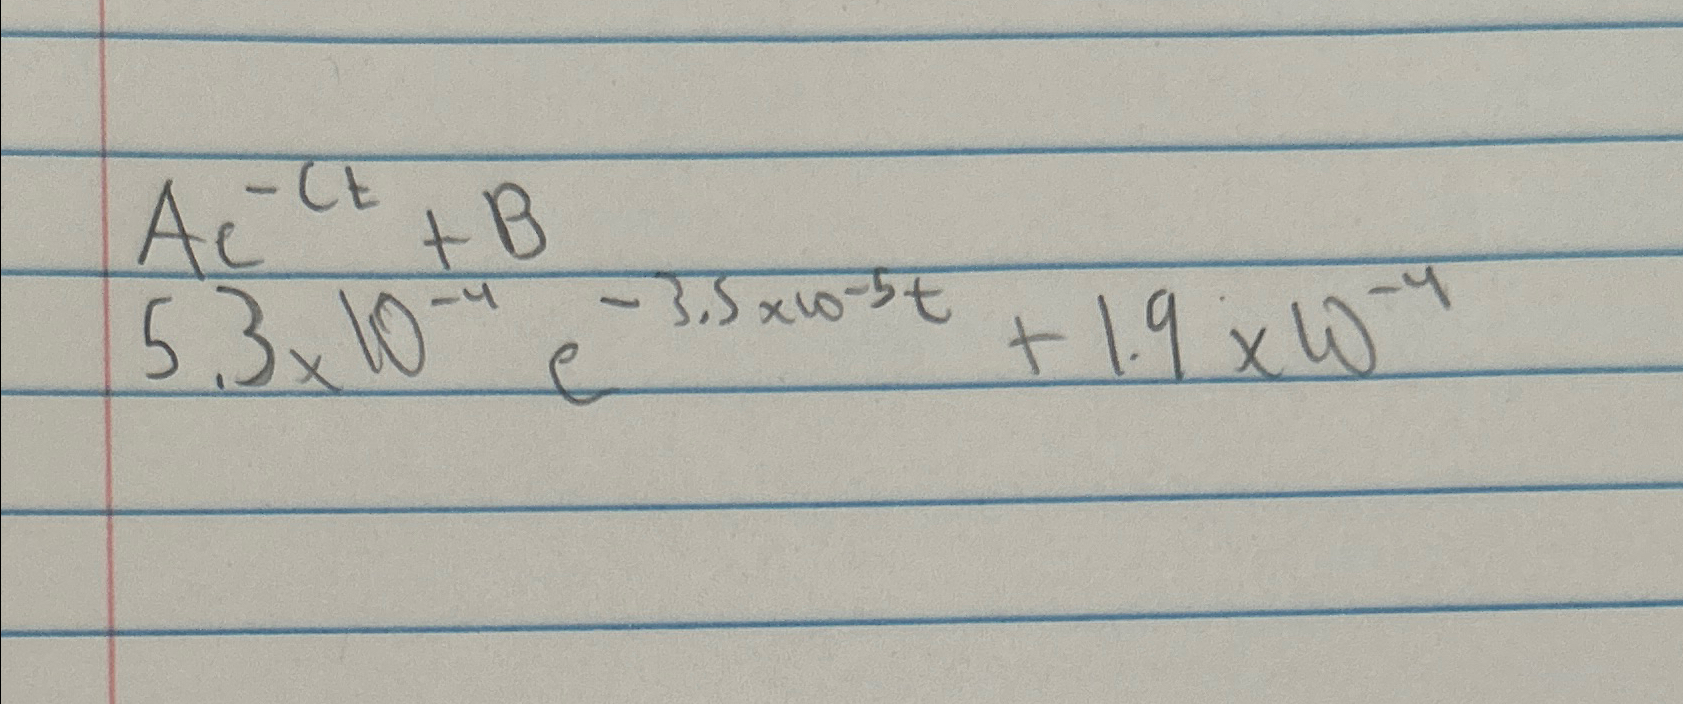 Ae^{-Ct} + B
5.3 x 10^{-4} e^{-3.5 x 10^{-5} t} + 1.9 x 10^{-4}